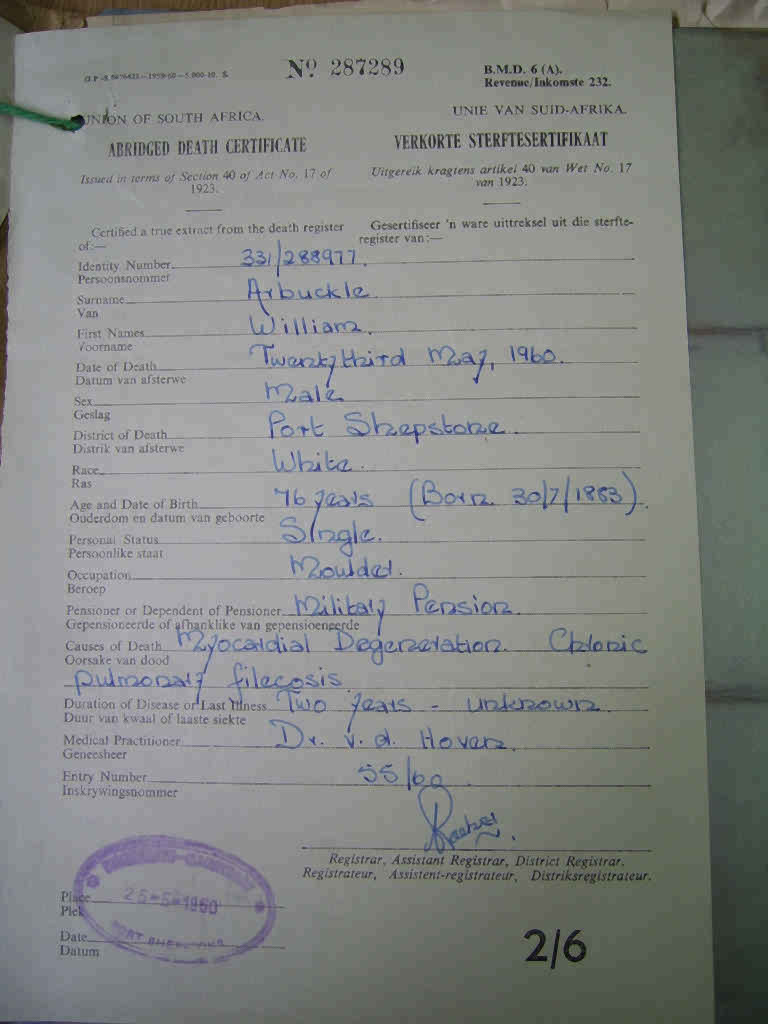 Nº 287289
B.M.D. 6 (A).
Revenue/Inkomste 232.
UNION OF SOUTH AFRICA.
UNIE VAN SUID-AFRIKA.
ABRIDGED DEATH CERTIFICATE
VERKORTE STERFTESERTIFIKAAT
Issued in terms of Section 40 of Act No. 17 of
1923.
Uitgereik kragtens artikel 40 van Wet No. 17
van 1923.
Certified a true extract from the death register
of:—
Gesertifiseer 'n ware uittreksel uit die sterfte-
register van:—
Identity Number 331/288977.
Persoonsnommer
Surname Arbuckle
Van
First Names William.
Voorname
Date of Death Twentythird May, 1960.
Datum van afsterwe
Sex Male
Geslag
District of Death Port Shepstone.
Distrik van afsterwe
Race White.
Ras
Age and Date of Birth 76 years (Born 30/7/1883).
Ouderdom en datum van geboorte
Personal Status Single.
Persoonlike staat
Occupation Moulder.
Beroep
Pensioner or Dependent of Pensioner Military Pension.
Gepensioneerde of afhanklike van gepensioeneerde
Causes of Death Myocardial Degeneration. Chronic
Oorsake van dood
pulmonary filecosis
Duration of Disease or Last Illness Two years - unknown.
Duur van kwaal of laaste siekte
Medical Practitioner Dr. v.d. Hoven.
Geneesheer
Entry Number 55/60
Inskrywingsnommer
Registrar, Assistant Registrar, District Registrar.
Registrateur, Assistent-registrateur, Distriksregistrateur.
Place
Plek
25-5-1960
PORT SHEPSTONE
Date
Datum
2/6